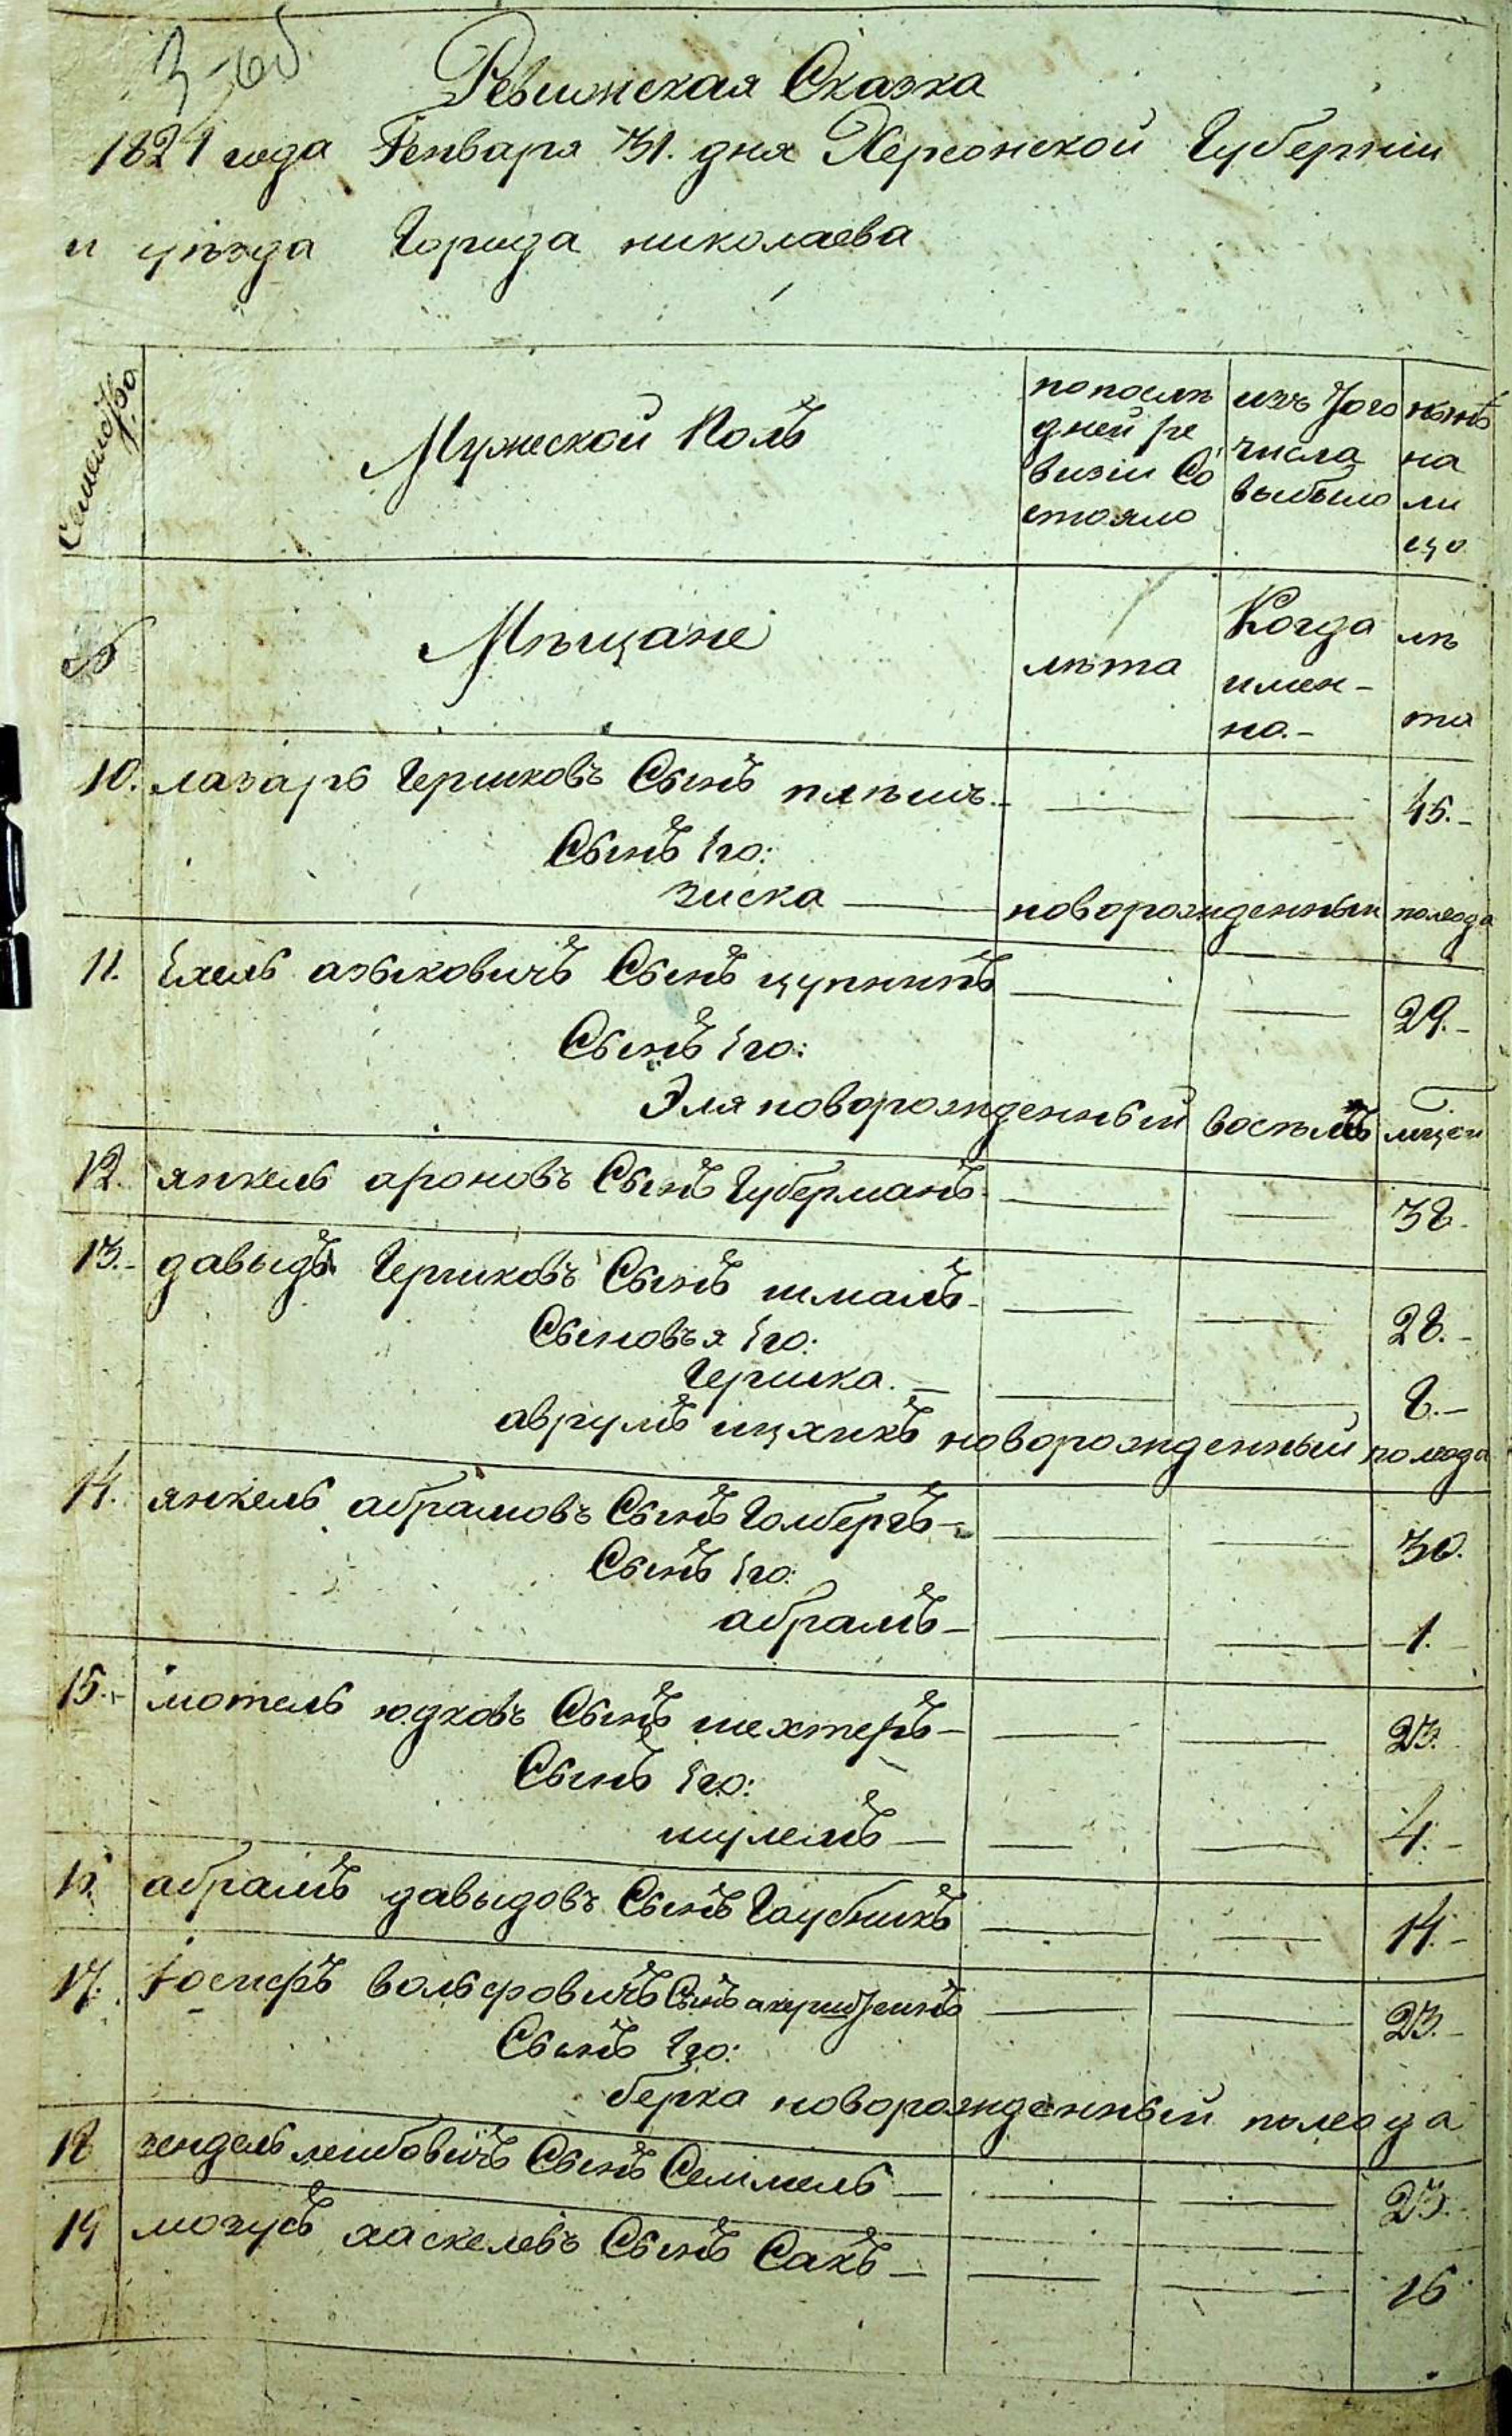 3 об
Ревижская Сказка
1821 года Генваря 31. дня Херсонской Губернии
и уѣзда Города николаева
Семейства
Мужеской Полъ
по послѣ
дней ре
визіи Со
стояло
изъ того
числа
выбыло
нынѣ
на
ли
цо
№
Мѣщане
лѣта
Когда
имен-
но.-
лѣ
та
10. лазарь Гершковъ Сынъ плѣшъ. 45.-
Сынъ Его:
зиска новорожденный полгода
11. Ехель азыковичъ Сынъ цупникъ 29.-
Сынъ Его:
Эля новорожденный восемь мцей
12. янкель ароновъ Сынъ Губерманъ. 38.
13.- давыдъ Гершковъ Сынъ шмалъ- 28.-
Сыновья Его:
Гершка.- 8.-
аврумъ ицхикъ новорожденный полгода
14. янкель абрамовъ Сынъ Голбергъ- 30.
Сынъ Его:
абрамъ- 1.
15.- мотель юдковъ Сынъ шехтеръ- 23.
Сынъ Его:
шулемъ- 4.-
16. абрамъ давыдовъ Сынъ Гаубникъ 14.-
17. Іосифъ вольфовичъ Сынъ 23.-
Сынъ Его:
берка новорожденный полгода
18 зендель лейбовичъ Сынъ Семмель- 23.-
19 могусъ хаскелевъ Сынъ Сакъ- 16